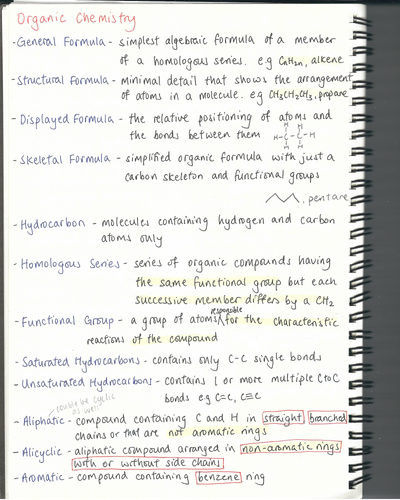 Organic Chemistry
- General Formula - simplest algebraic formula of a member
of a homologous series. e.g CnH2n, alkene
- Structural Formula - minimal detail that shows the arrangement
of atoms in a molecule. eg CH3CH2CH3, propane
- Displayed Formula - the relative positioning of atoms and
the bonds between them
H H
H-C-C-H
H H
- Skeletal Formula - simplified organic formula with just a
carbon skeleton and functional groups
, pentane
- Hydrocarbon - molecules containing hydrogen and carbon
atoms only
- Homologous Series - series of organic compounds having
the same functional group but each
successive member differs by a CH2
- Functional Group - a group of atoms responsible for the characteristic
reactions of the compound
- Saturated Hydrocarbons - contains only C-C single bonds
- Unsaturated Hydrocarbons - contains 1 or more multiple C to C
bonds eg C=C, C≡C
could be cyclic
as well
- Aliphatic - compound containing C and H in straight branched
chains or that are not aromatic rings
- Alicyclic - aliphatic compound arranged in non-aromatic rings
with or without side chains
- Aromatic - compound containing benzene ring